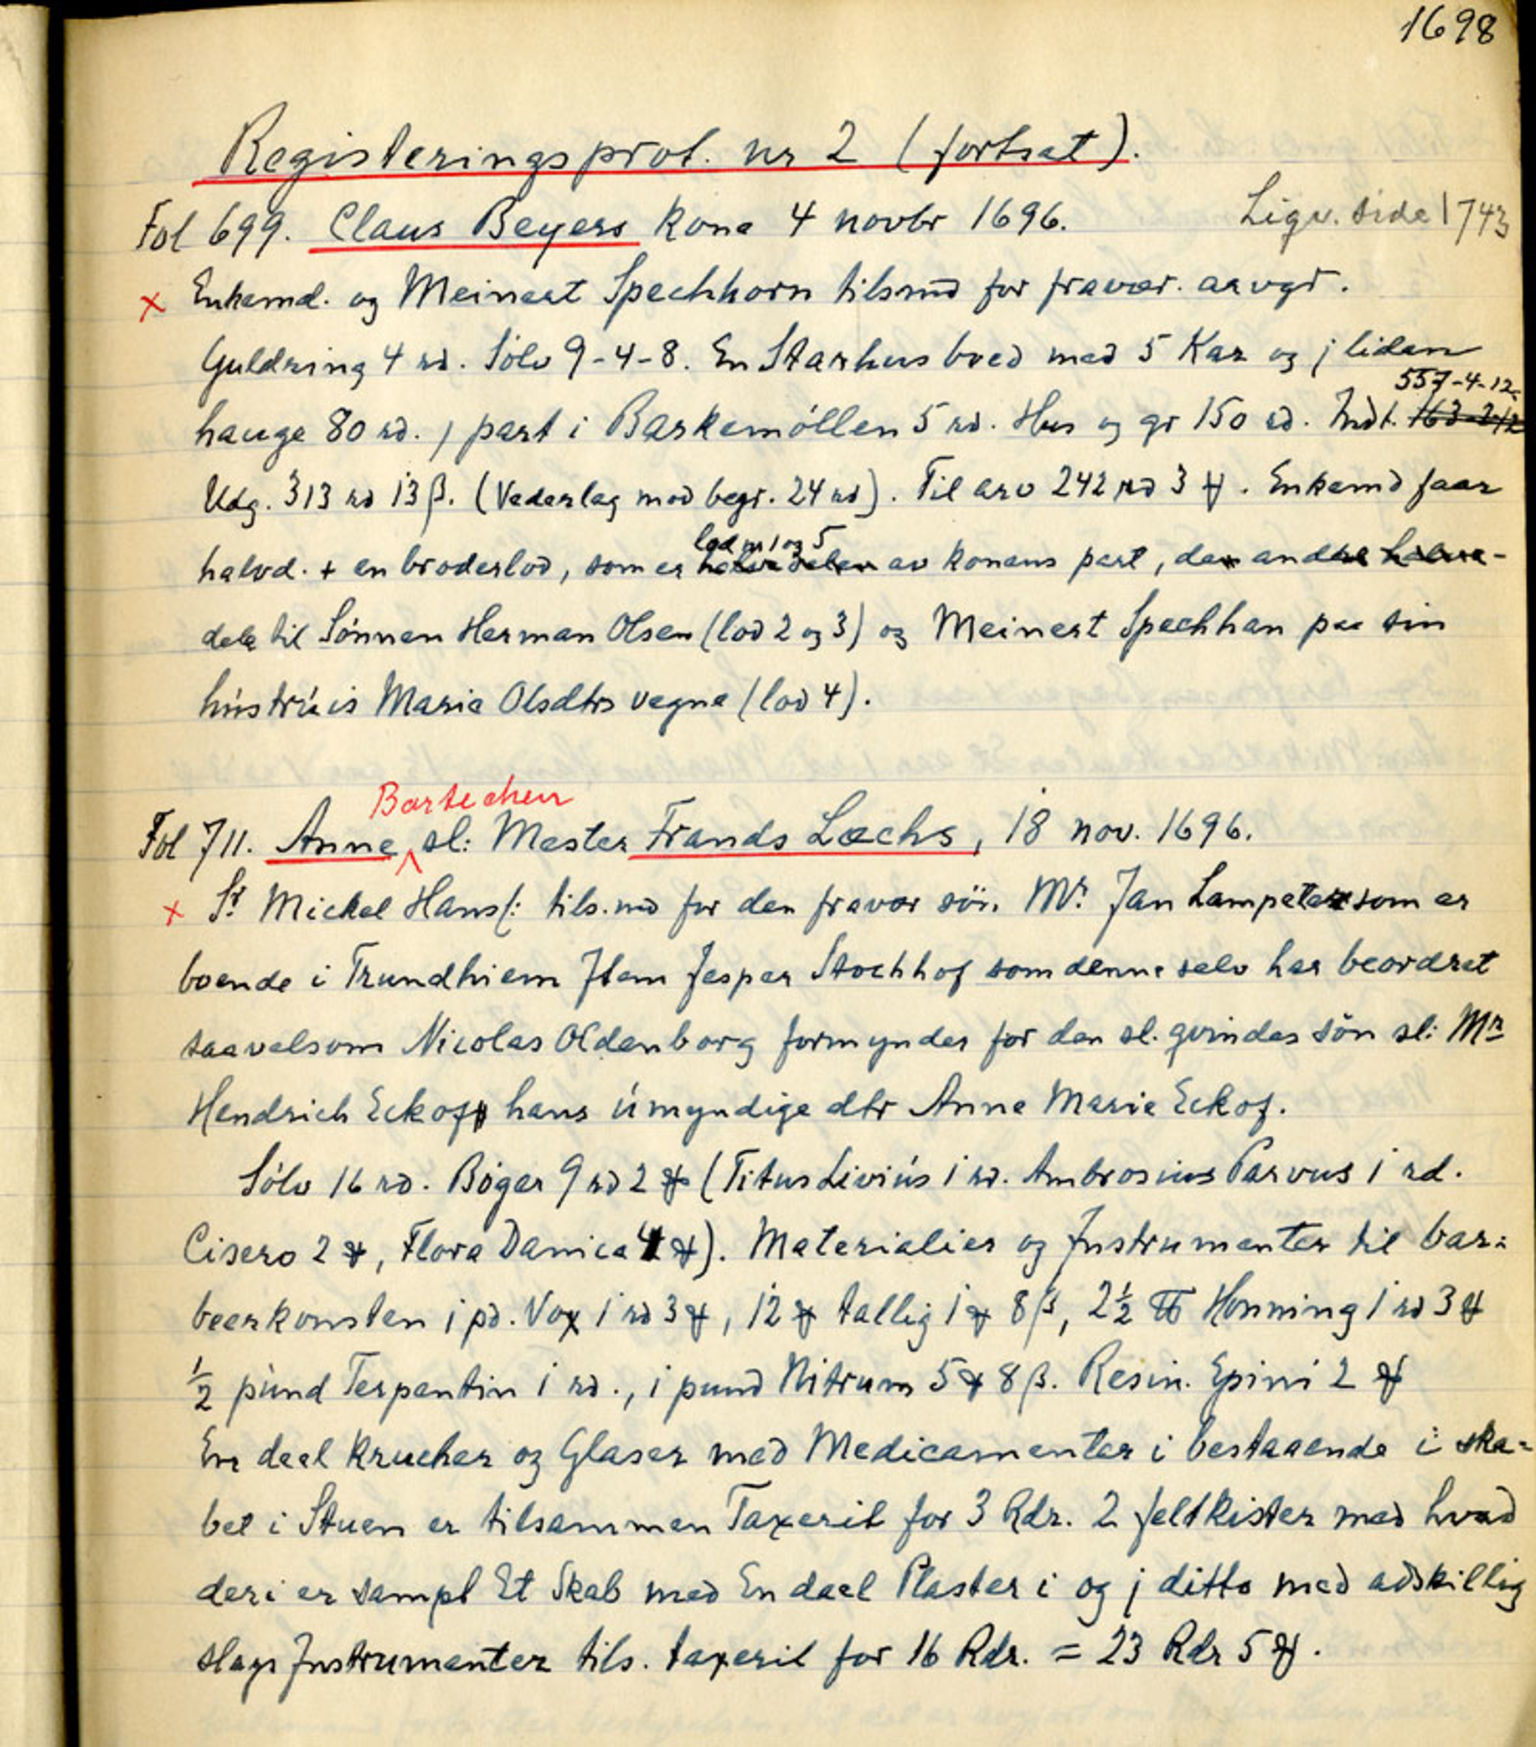 1698
Registeringsprot. nr 2 (fortsat).
Fol 699. Claus Beyers kone 4 novbr 1696. Ligv. side 1743
x Enkemd. og Meinert Spechhorn tilsmd for fravær. arvgr.
Guldring 4 rd. Sölv 9-4-8. En Starhusboed med 5 Kar og j liden
557-4-12
hauge 80 rd. j part i Barkemöllen 5 rd. Hus og gr 150 rd. Indt. 163-2-12
Udg. 313 rd 13 β. (Vederlag mod begr. 24 rd). Til arv 242 rd 3 ꝟ. Enkemd faar
lod nr 1 og 5
halvd. + en broderlod, som er halvedelen av konens part, den andre halve-
dele til Sönnen Herman Olsen (lod 2 og 3) og Meinert Spechhan paa sin
hústrúis Marie Olsdtrs vegne (lod 4).
Bartechen
Fol 711. Anne sl: Mester Frands Læchs, 18 nov. 1696.
x Sr Mickel Hansf: tils.md for den fravær sön. Mr. Jan Lampeter som er
boende i Trundhiem Item Jesper Stochhof som denne selv har beordret
saavelsom Nicolas Oldenborg formynder for den sl. qvindes sön sl: Mr
Hendrich Eckof hans úmyndige dtr Anne Marie Eckof.
Sölv 16 rd. Böger 9 rd 2 ꝟ (Titus Liviús 1 rd. Ambrosius Parvus 1 rd.
Cisero 2 ꝟ, Flora Danica 4 ꝟ). Materialier og Instrumenter til bar:
beerkonsten i pd. Vox 1 rd 3 ꝟ, 12 ꝟ tallig 1 ꝟ 8 β, 2½ ℔ Honning 1 rd 3 ꝟ
½ púnd Terpentin 1 rd., i pund Nitrum 5 ꝟ 8 β. Resin. Epini 2 ꝟ
En deel krucher og Glaser med Medicamenter i bestaaende i ska=
bet i Stuen er tilsammen Taxerit for 3 Rdr. 2 feltkister med hvad
deri er sampt Et Skab med En deel Plaster i og j ditto med adskillig
slags Instrumenter tils. taxerit for 16 Rdr. = 23 Rdr 5 ꝟ.